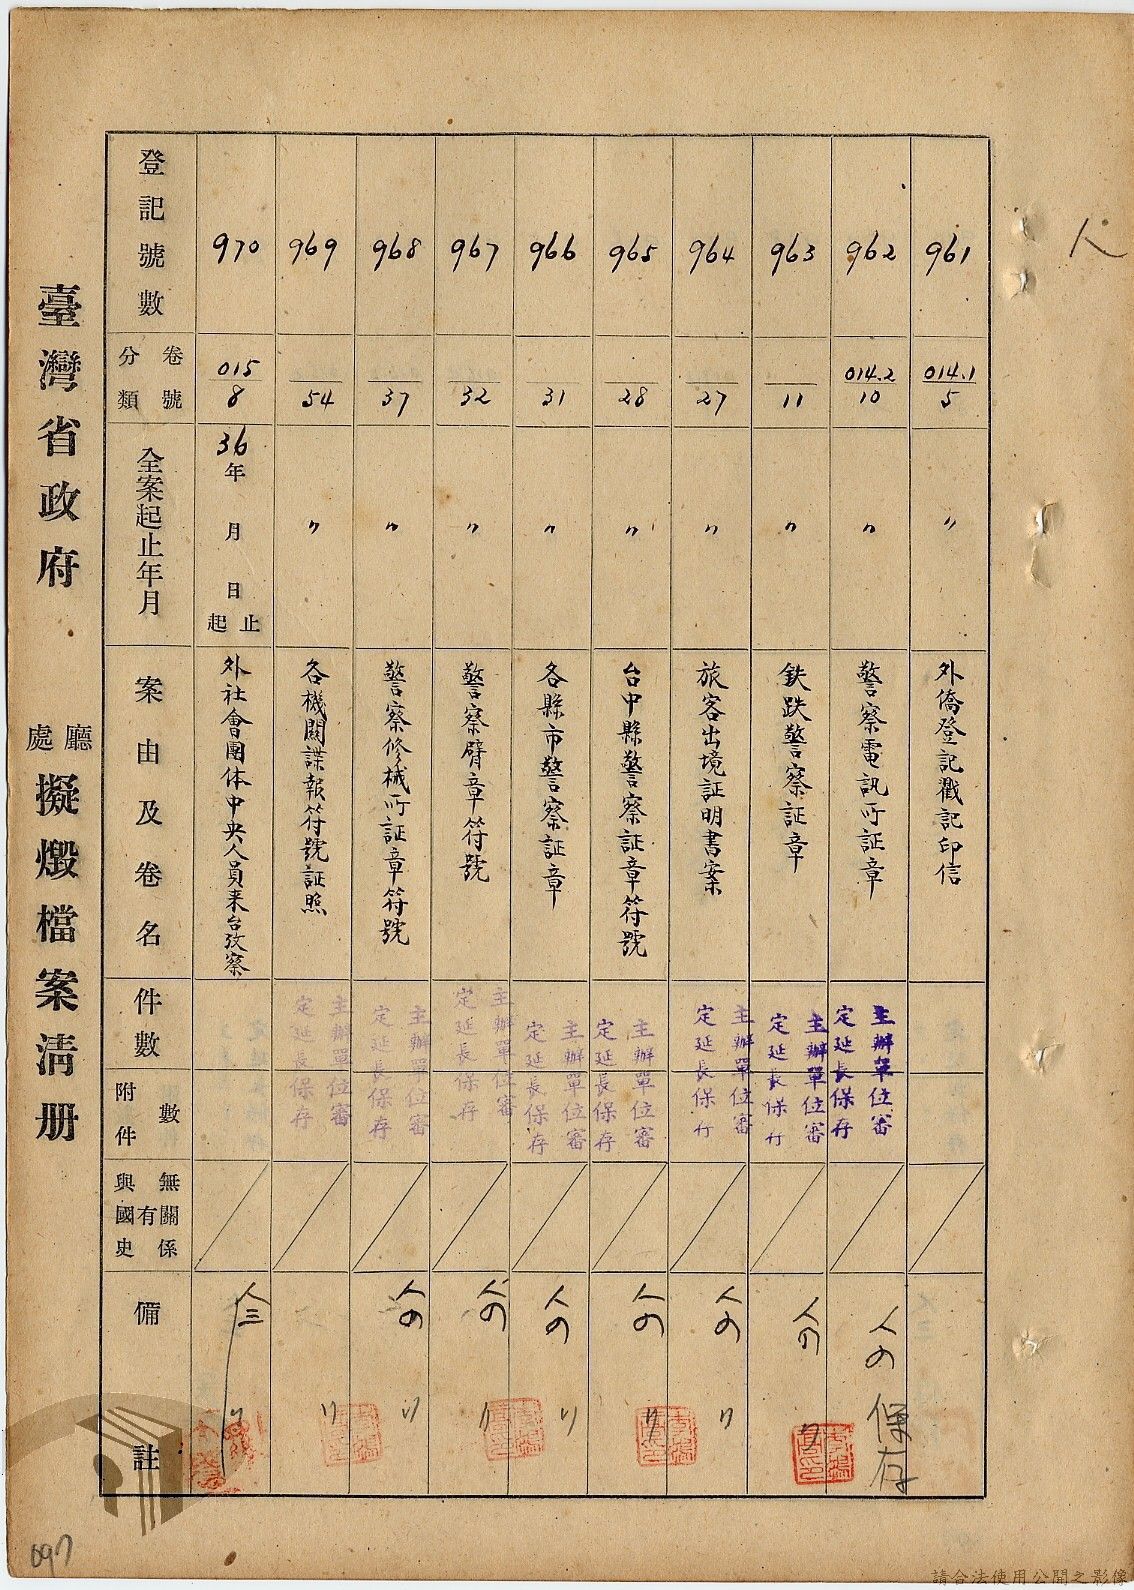 臺灣省政府 廳處 擬燬檔案清册
登記號數
分類 卷號
全案起止年月
案由及卷名
件數
附件數
與國史有無關係
備註
961
014.1/5
〃
外僑登記戳記印信
962
014.2/10
〃
警察電訊所証章
主辦單位審定延長保存
保存
963
11
〃
鉄跌警察証章
主辦單位審定延長保
〃
964
27
〃
旅客出境証明書案
主辦單位審定延長保
〃
965
28
〃
台中縣警察証章符號
主辦單位審定延長保存
〃
966
31
〃
各縣市警察証章
主辦單位審定延長保存
〃
967
32
〃
警察臂章符號
主辦單位審定延長保存
〃
968
37
〃
警察修械所証章符號
主辦單位審定延長保存
〃
969
54
〃
各機關諜報符號証照
主辦單位審定延長保存
〃
970
015/8
36年 月 日起止
外社會團体中央人員来台攷察
人三
〃
人
097
請合法使用公開之影像